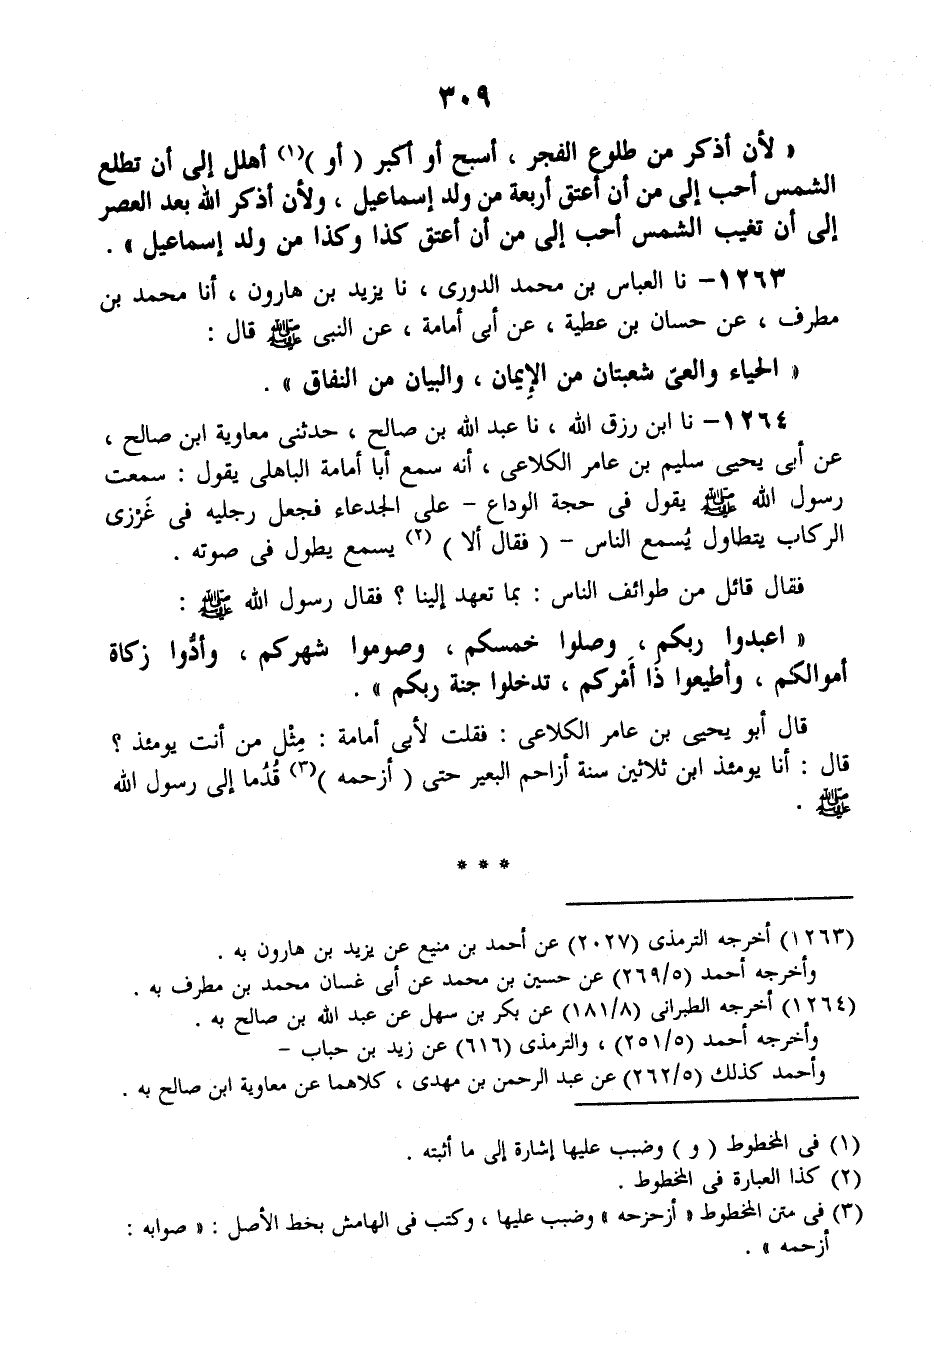 ٣٠٩
« لأن أذكر من طلوع الفجر ، أسبح أو أكبر ( أو )(١) أهلل إلى أن تطلع
الشمس أحب إلى من أن أعتق أربعة من ولد إسماعيل ، ولأن أذكر الله بعد العصر
إلى أن تغيب الشمس أحب إلى من أن أعتق كذا وكذا من ولد إسماعيل » .
١٢٦٣– نا العباس بن محمد الدورى ، نا يزيد بن هارون ، أنا محمد بن
مطرف ، عن حسان بن عطية ، عن أبى أمامة ، عن النبى ﷺ قال :
« الحياء والعىّ شعبتان من الإِيمان ، والبيان من النفاق » .
١٢٦٤– نا ابن رزق الله ، نا عبد الله بن صالح ، حدثنى معاوية ابن صالح ،
عن أبى يحيى سليم بن عامر الكلاعى ، أنه سمع أبا أمامة الباهلى يقول : سمعت
رسول الله ﷺ يقول فى حجة الوداع – على الجدعاء فجعل رجليه فى غَرْزى
الركاب يتطاول يُسمع الناس – ( فقال ألا ) (٢) يسمع يطول فى صوته .
فقال قائل من طوائف الناس : بما تعهد إلينا ؟ فقال رسول الله ﷺ :
« اعبدوا ربكم ، وصلوا خمسكم ، وصوموا شهركم ، وأدُّوا زكاة
أموالكم ، وأطيعوا ذَا أَمْركم ، تدخلوا جنة ربكم » .
قال أبو يحيى بن عامر الكلاعى : فقلت لأبى أمامة : مِثْل من أنت يومئذ ؟
قال : أنا يومئذ ابن ثلاثين سنة أزاحم البعير حتى ( أزحمه )(٣) قُدُما إلى رسول الله
ﷺ .
* * *
(١٢٦٣) أخرجه الترمذى (٢٠٢٧) عن أحمد بن منيع عن يزيد بن هارون به .
وأخرجه أحمد (٢٦٩/٥) عن حسين بن محمد عن أبى غسان محمد بن مطرف به .
(١٢٦٤) أخرجه الطبرانى (١٨١/٨) عن بكر بن سهل عن عبد الله بن صالح به .
وأخرجه أحمد (٢٥١/٥) ، والترمذى (٦١٦) عن زيد بن حباب –
وأحمد كذلك (٢٦٢/٥) عن عبد الرحمن بن مهدى ، كلاهما عن معاوية ابن صالح به .
(١) فى المخطوط ( و ) وضبب عليها إشارة إلى ما أثبته .
(٢) كذا العبارة فى المخطوط .
(٣) فى متن المخطوط « أزحزحه » وضبب عليها ، وكتب فى الهامش بخط الأصل : « صوابه :
أزحمه » .